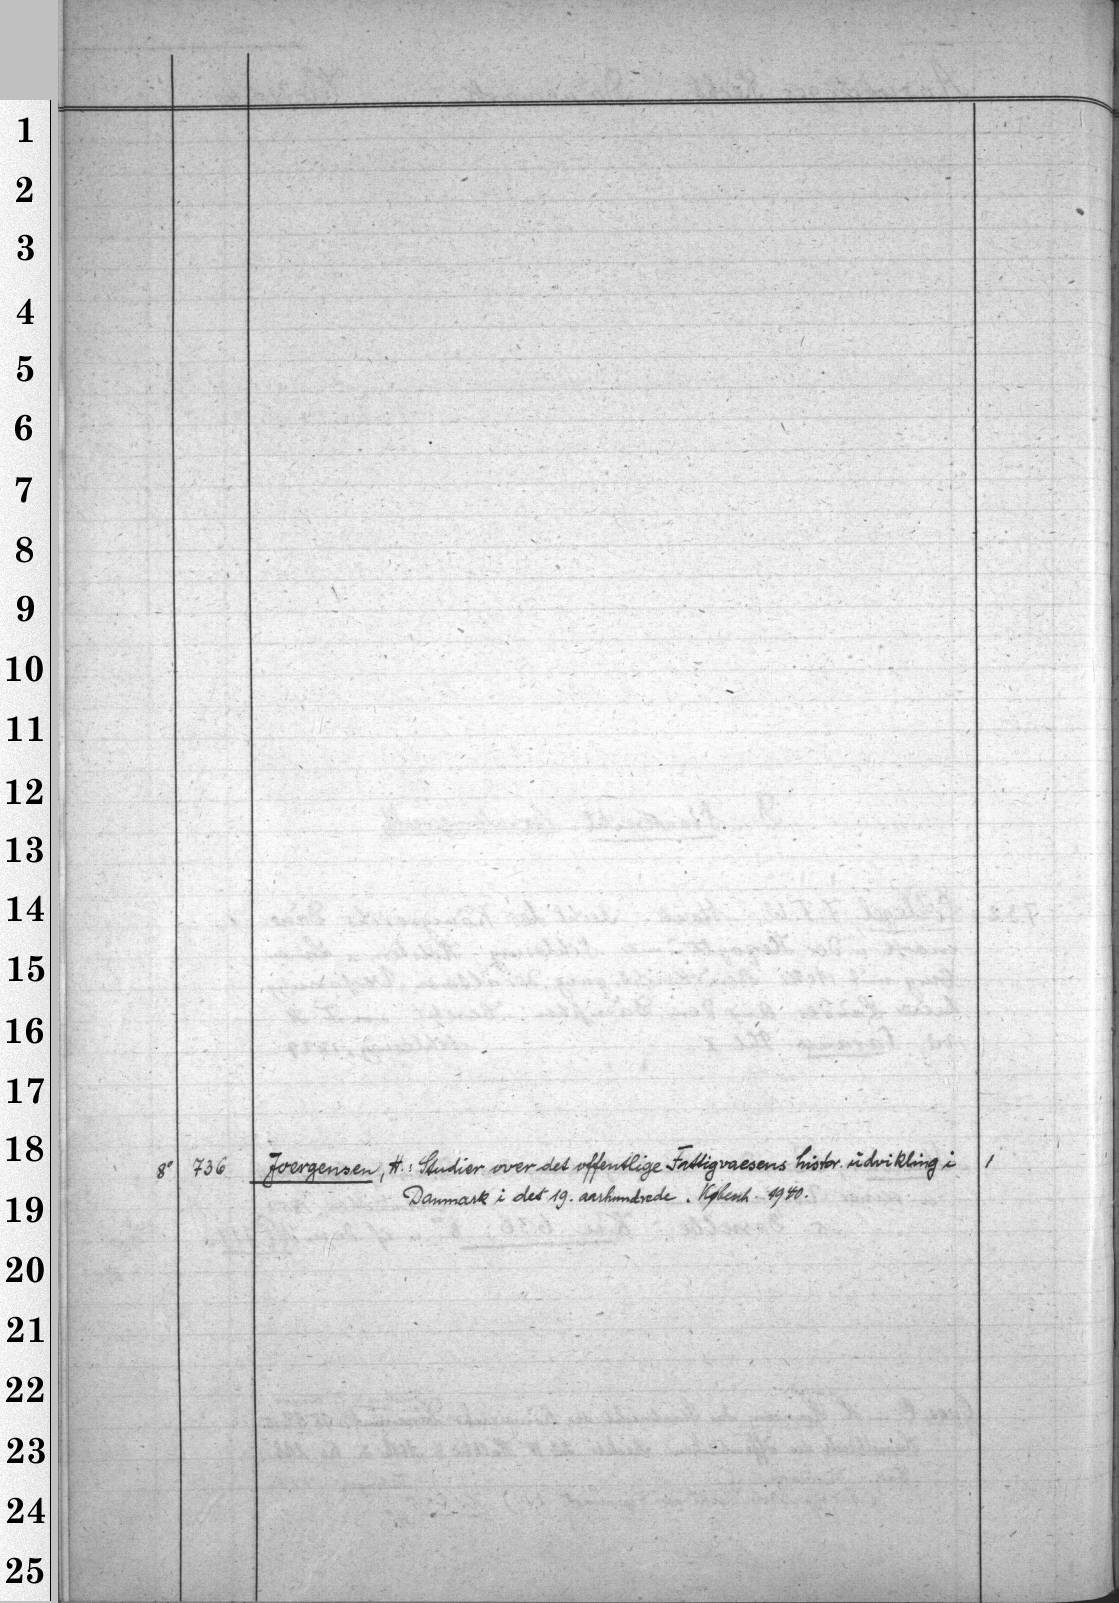 1
2
3
4
5
6
7
8
9
10
11
12
13
14
15
16
17
18
8° 736 Joergensen, H.: Studier over det offentlige Fattigvaesens histor. udvikling i 1
Danmark i det 19. aarhundrede. Kjbenh. 1940.
19
20
21
22
23
24
25